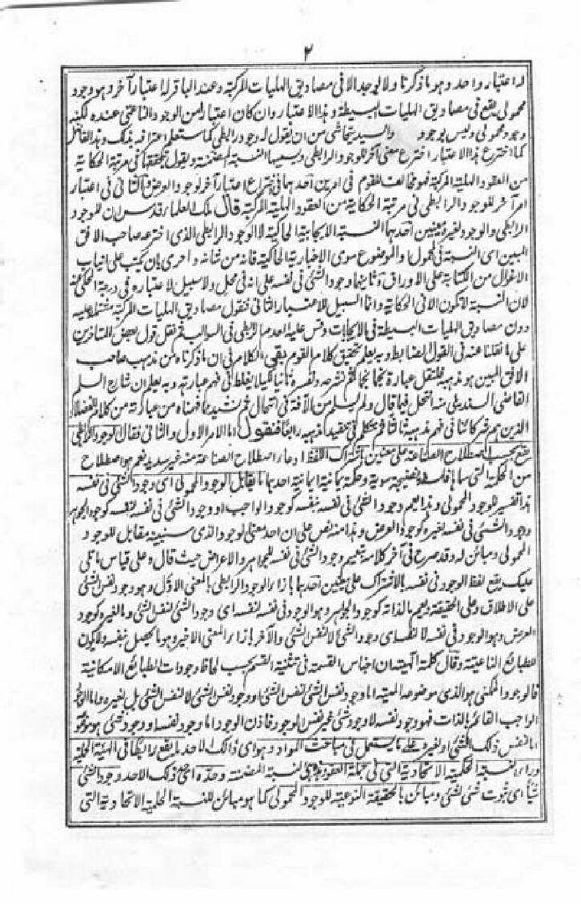 ٢
له اعتبار واحد وهو ما ذكرنا ولا يوجد الا فى مصاديق الهليات المركبة وعند الباقر له اعتبار آخر وهو وجود
محمولى يقع فى مصاديق الهليات البسيطة وهذا الاعتبار وان كان اعتبارا من الوجود الناعتى عنده لكنه
وجود محمولى وليس بوجود والسيد يتحاشى من ان يقول له وجود رابطى كما ستعلم اعترافه بذلك وهذا الفاضل
كما اخترع هذا الاعتبار اخترع معنى آخر للوجود الرابطى ويسميها النسبة المتضمنة ويقول بتحققها فى مرتبة الحكاية
من العقود الهلية المركبة فهو مخالف للقوم فى امرين احدهما فى اختراع اعتبار آخر لوجود العرض والثانى فى اعتبار
امر آخر للوجود الرابطى فى مرتبة الحكاية من العقود الهلية المركبة قال ملك العلماء قدس سره ان للوجود
الرابطى والوجود لغيره معنيين احدهما النسبة الايجابية الحاكية لا الوجود الرابطى الذى اخترعه صاحب الافق
المبين اى النسبة فى المحمول والموضوع سوى الاخبارية الحاكية فانه من شانه واحرى بان يكتب على انياب
الاغوال من الكتابة على الاوراق وثانيهما وجود الشئ فى نفسه على انه فى محل ولا سبيل لاعتباره فى درجة المحكى عنه
لان النسبة لا تكون الا فى الحكاية وانما السبيل للاعتبار الثانى فنقول مصاديق الهليات المركبة مشتملة عليه
دون مصاديق الهليات البسيطة فى الايجابات وقس عليه احدهما لا رابطى فى السوالب ثم نقل قول بعض المتاخرين
على ما نقلنا عنه فى القول الضابط وبه يعلم تحقيق كلام القوم بقى الكلام فى ان ما ذكرنا من مذهب صاحب
الافق المبين هو مذهبه فلننقل عبارة
القاضى السنديلى
الذين هم شركائنا فى فهم مذهبه ثالثا ثم نتكلم فى تفنيد مذهبه رابعا فنقول اما الامر الاول والثانى فقال الوجود الرابطى
يقع بحسب اصطلاح الصناعة على معنيين باشتراك اللفظ
من الحكمة التى
هذا تفسير للوجود المحمولى وهذا يعم وجود الشئ فى نفسه بنفسه كوجود الواجب او وجود الشئ فى نفسه لنفسه كوجود الجوهر
ووجود الشئ فى نفسه لغيره كوجود العرض وهذا منه نص على ان احد معنى الوجود الذى سيبينه مقابل للوجود
المحمولى ومبائن له وقد صرح فى آخر كلامه بتعميم وجود الشئ فى نفسه للجواهر والاعراض حيث قال وعلى قياس ما تلى
عليك يقع لفظ الوجود فى نفسه بالاشتراك على معنيين احدهما بازاء الوجود الرابطى بالمعنى الاول وهو وجود نفس الشئ
على الاطلاق وعلى الحقيقة ويعم ما لذاته كوجود الجواهر وهو الوجود فى نفسه لنفسه اى وجود الشئ لنفس الشئ وما لغيره كوجود
العرض وهو الوجود فى نفسه لا لنفسه اى وجود الشئ لا لنفس الشئ والآخر بازاء المعنى الاخير وهو ما يحصل بنفسه فلا يكون
للطبائع الناعتية وقال كلمة الهية ان اخناس القسمة فى تثنية القسم بحسب لحاظ وجودات الطبائع الامكانية
فالوجود الممكنى هو الذى موضوعه الهية اما وجود نفس الشئ لنفس الشئ او وجود نفس الشئ لا لنفس الشئ بل لغيره واما الوجود
الواجب القائم بالذات فهو وجود نفسه لا وجود شئ غير نفس الموجود فاذن الوجود اما وجود نفسه او وجود شئ هو غيره
اما لنفس ذلك الشئ او لغيره على ما يستعمل فى مباحث المواد وهو اى ذلك الاحد ما يقع رابطا فى الهلية الحملية
وراء النسبة الحكمية الاتحادية التى فى جملة العقود وهى النسبة المتضمنة وحده اى ذلك الاحد وجود الشئ
شيئا اى ثبوت شئ لشئ ومبائن بالحقيقة النوعية للوجود المحمولى كما هو مبائن للنسبة الحكمية الاتحادية التى